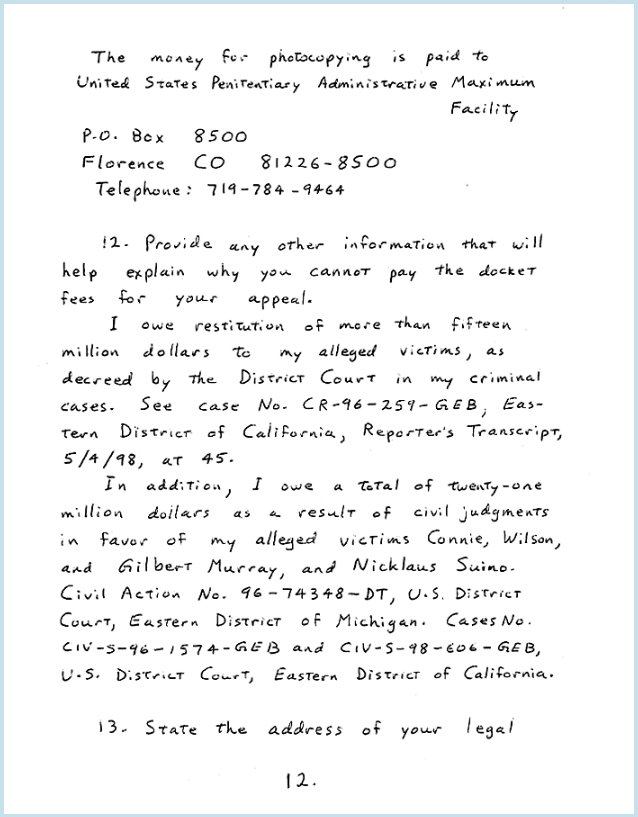 The money for photocopying is paid to
United States Penitentiary Administrative Maximum
Facility
P.O. Box 8500
Florence CO 81226-8500
Telephone: 719-784-9464
12. Provide any other information that will
help explain why you cannot pay the docket
fees for your appeal.
I owe restitution of more than fifteen
million dollars to my alleged victims, as
decreed by the District Court in my criminal
cases. See case No. CR-96-259-GEB, Eas-
tern District of California, Reporter's Transcript,
5/4/98, at 45.
In addition, I owe a total of twenty-one
million dollars as a result of civil judgments
in favor of my alleged victims Connie, Wilson,
and Gilbert Murray, and Nicklaus Suino.
Civil Action No. 96-74348-DT, U.S. District
Court, Eastern District of Michigan. Cases No.
CIV-S-96-1574-GEB and CIV-S-98-606-GEB,
U.S. District Court, Eastern District of California.
13. State the address of your legal
12.